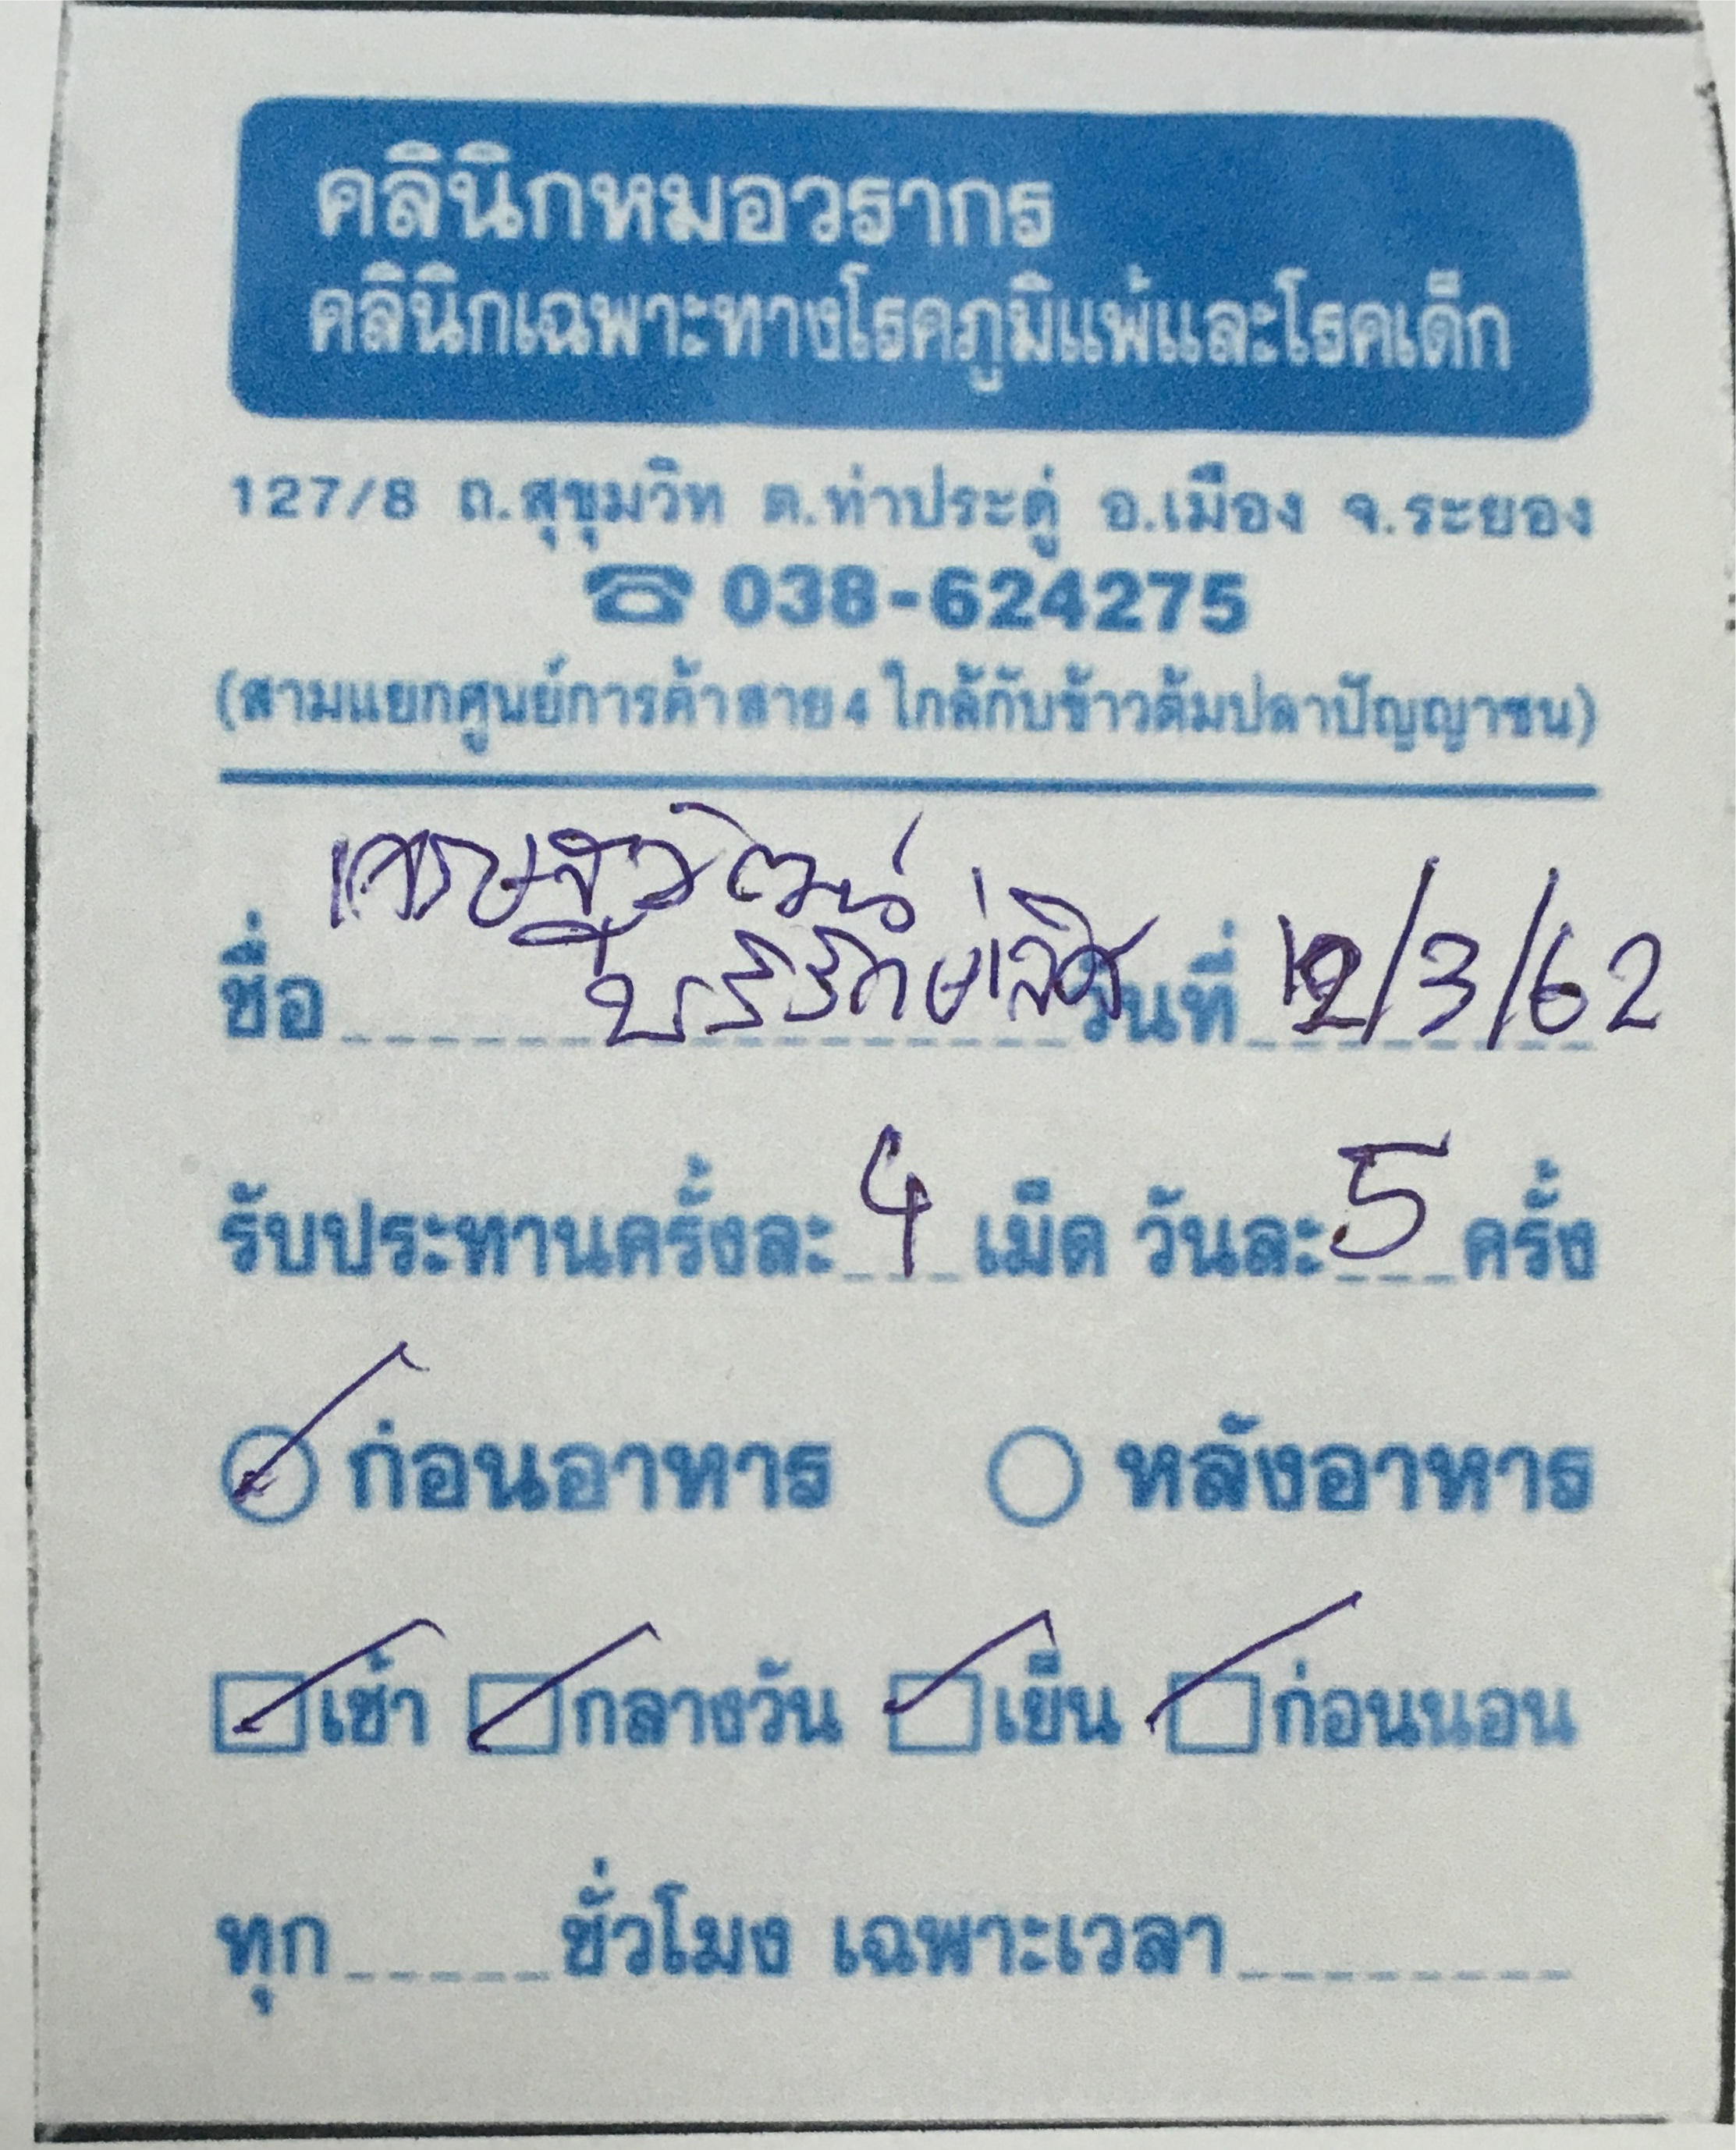 คลินิกหมอวรากร
คลินิกเฉพาะทางโรคภูมิแพ้และโรคเด็ก
127/8 ถ.สุขุมวิท ต.ท่าประดู่ อ.เมือง จ.ระยอง
☎ 038-624275
(สามแยกศูนย์การค้าสาย 4 ใกล้กับข้าวต้มปลาปัญญาชน)
ชื่อ วันที่ 12/3/62
รับประทานครั้งละ 4 เม็ด วันละ 5 ครั้ง
ก่อนอาหาร หลังอาหาร
เช้า กลางวัน เย็น ก่อนนอน
ทุก ชั่วโมง เฉพาะเวลา